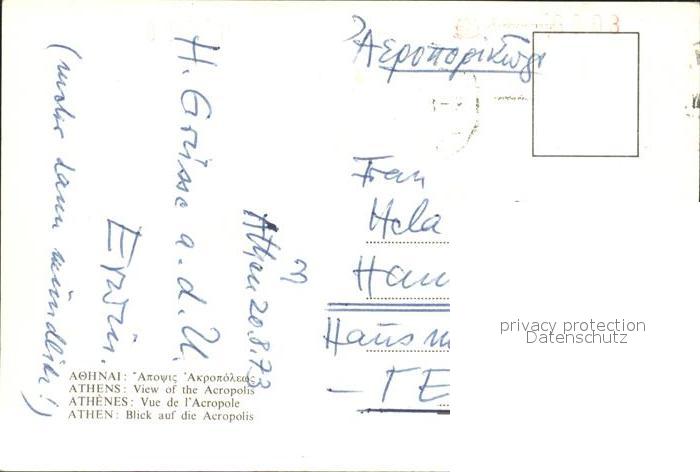 Ἀεροπορικῶς
Athen 20.8.73
H. Grüsse a. d. U.
Erwin.
(mehr dann mündlich!)
Frau
Hela
Han
Hausm
– ΓΕ
privacy protection
Datenschutz
ΑΘΗΝΑΙ: Ἄποψις Ἀκροπόλεως
ATHENS: View of the Acropolis
ATHÈNES: Vue de l'Acropole
ATHEN: Blick auf die Acropolis